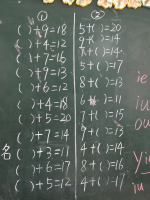 ① ②
( )+9=18 5+( )=20
( )+4=12 9+( )=14
( )+7=16 7+( )=14
( )+9=13 5+( )=17
( )+6=12 8+( )=13
( )+4=18 6+( )=11
( )+5=20 7+( )=15
( )+7=14 9+( )=13
名 ( )+3=11 4+( )=14
( )+6=17 8+( )=16
( )+5=12 4+( )=17
ie
iu
ou